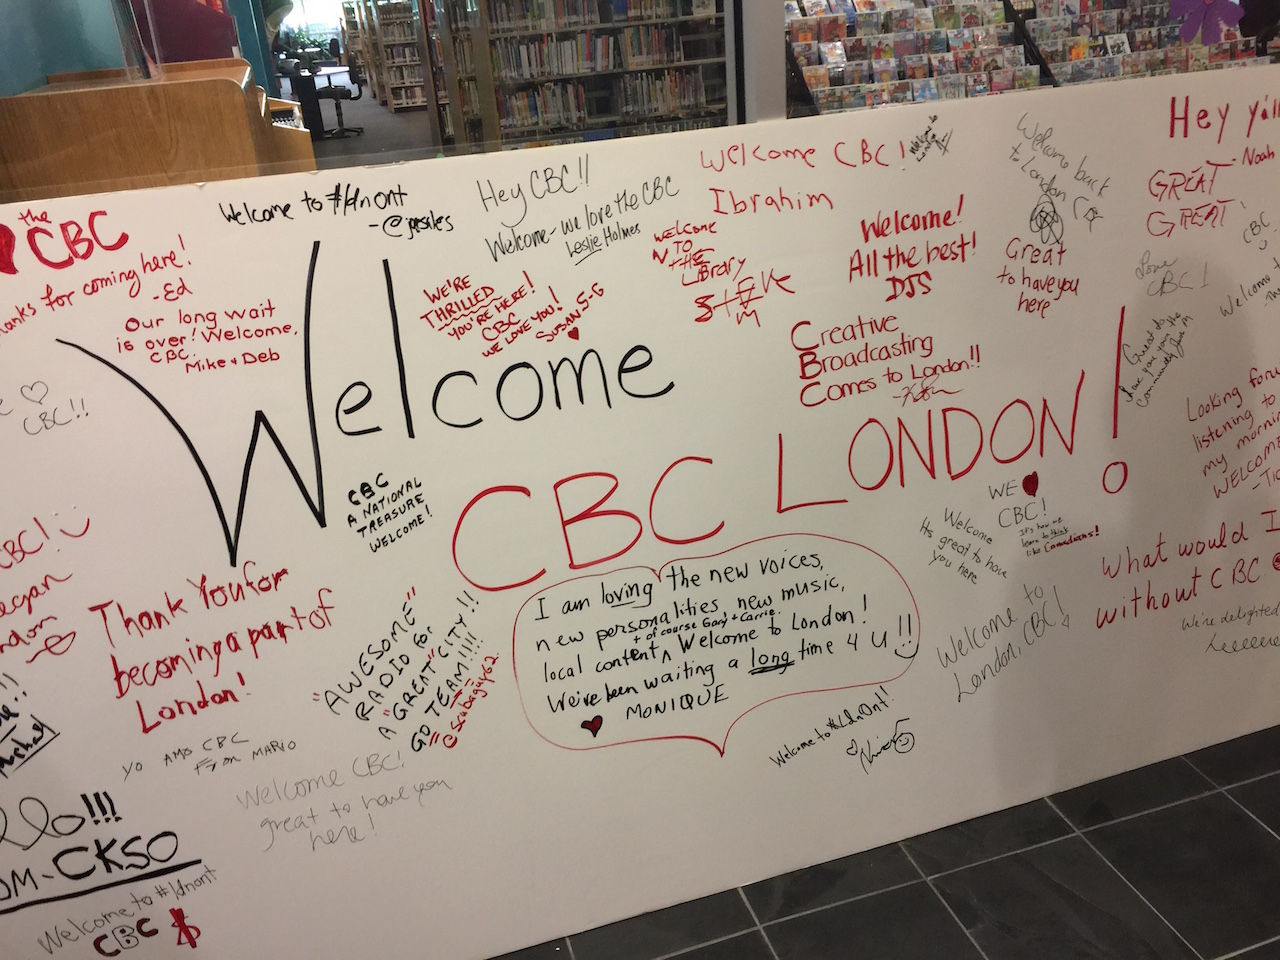 Welcome
CBC LONDON!
the
CBC
Thanks for coming here!
-Ed
Our long wait
is over! Welcome,
CBC.
Mike + Deb
CBC!!
Welcome to #ldnont
Hey CBC!!
Welcome - we love the CBC
Leslie Holmes
WE'RE
THRILLED
YOU'RE HERE!
CBC
WE LOVE YOU!
SUSAN S-G
Welcome CBC!
Ibrahim
WELCOME
TO
THE
Library
Welcome!
All the best!
DJS
Creative
Broadcasting
Comes to London!!
Welcome back
to London
Great
to have you
here
Hey y'all
- Noah
GREAT
GREAT!
CBC
Love
CBC!
Great to
have you in the
community
Looking forward
listening to
my morning
WELCOME
CBC
A NATIONAL
TREASURE
WELCOME!
WE ♥
CBC!
It's how we
learn to think
like Canadians!
Welcome
It's great to have
you here
What would I
without CBC
We're delighted
Welcome to
London, CBC!
I am loving the new voices,
new personalities, new music,
+ of course Gary + Carrie.
local content ^ Welcome to London!
We've been waiting a long time 4 U!!
MONIQUE
Welcome to #LdnOnt!
"AWESOME"
RADIO for
A "GREAT" CITY!!
GO TEAM!!!!
@scubaguy62
Thank You for
becoming a part of
London!
CBC!
YO AMO CBC
From MARIO
Welcome CBC!
great to have you
here!
Michael
CKSO
Welcome to #ldnont
CBC